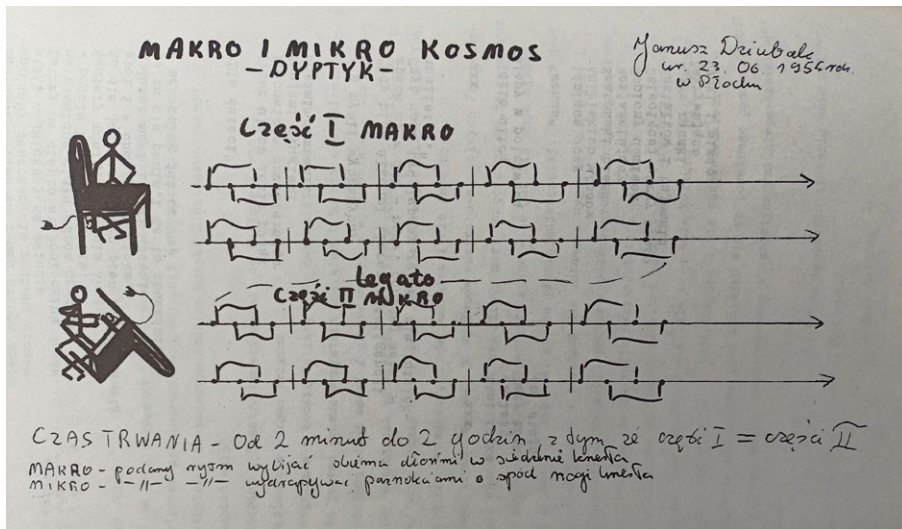 MAKRO I MIKRO KOSMOS
-DYPTYK-
Janusz Dziubak
ur. 23. 06. 1956 rok.
w Płocku
Część I MAKRO
legato
Część II MIKRO
CZAS TRWANIA - Od 2 minut do 2 godzin, z tym że część I = części II
MAKRO - podany rytm wybijać obiema dłońmi w siedzenie krzesła
MIKRO - -〃- -〃- wydrapywać paznokciami o spód nogi krzesła